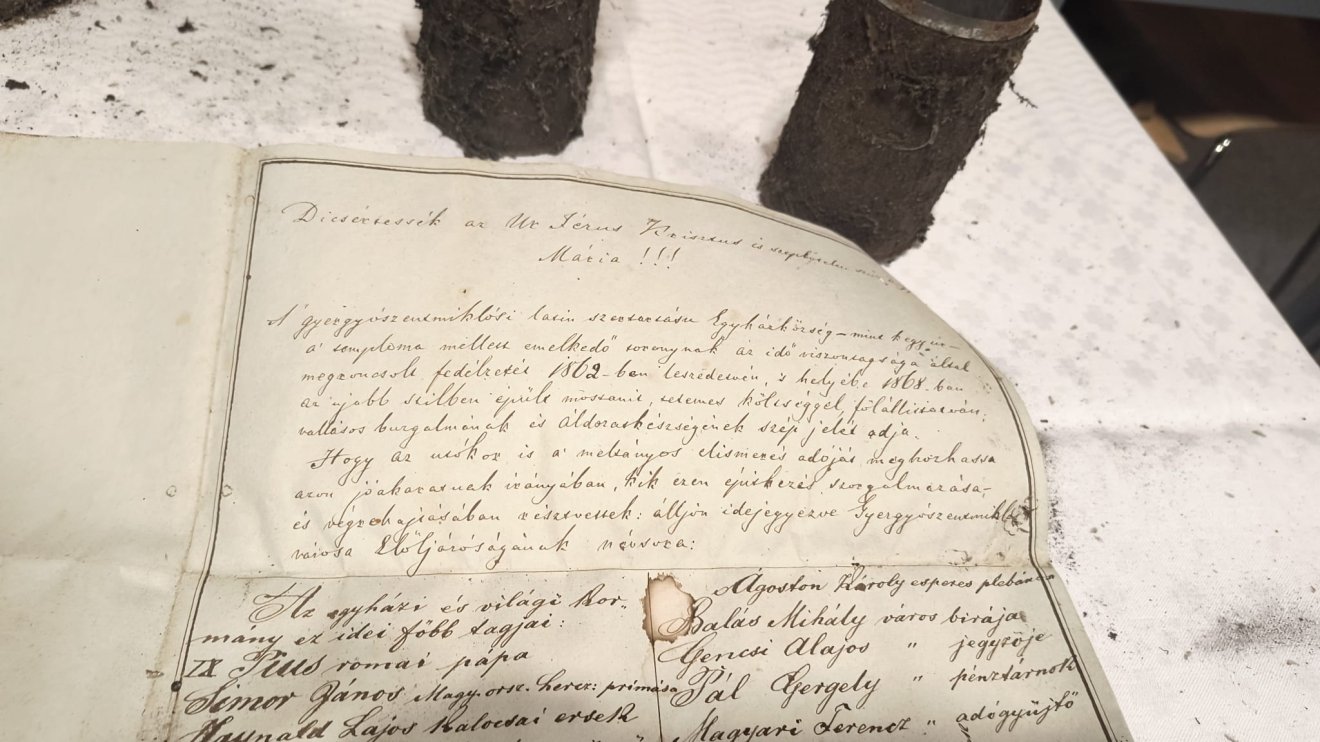 Dicsértessék az Ur Jézus Krisztus és szeplőtelen szűz
Mária !!!
A' gyergyószentmiklósi latin szertartásu Egyházközség – mint kegyúr –
a' temploma mellett emelkedő toronynak az idő viszontagsága által
megroncsolt fedélzetét 1862-ben leszedetvén, 's helyébe 1868-ban
az ujabb stilben épült mostanit, tetemes költséggel, fölállittatván;
vallásos buzgalmának és áldozatkészségének szép jelét adja.
Hogy az utókor is a' méltányos elismerés adóját meghozhassa
azon jóakaratnak irányában, kik ezen épitkezés szorgalmazása-
és végrehajtásában résztvettek: álljon idejegyezve Gyergyószentmiklós
városa Elöljáróságának névsora:
Az egyházi és világi kor-
mány ez idei főbb tagjai:
IX Pius romai pápa
Simor János Magy. orsz. hercz: primása
Haynald Lajos kalocsai érsek
Ágoston Károly esperes plébános
Balás Mihály város birája
Gencsi Alajos " jegyzője
Pál Gergely " pénztárnok
Magyari Ferencz " adógyüjtő